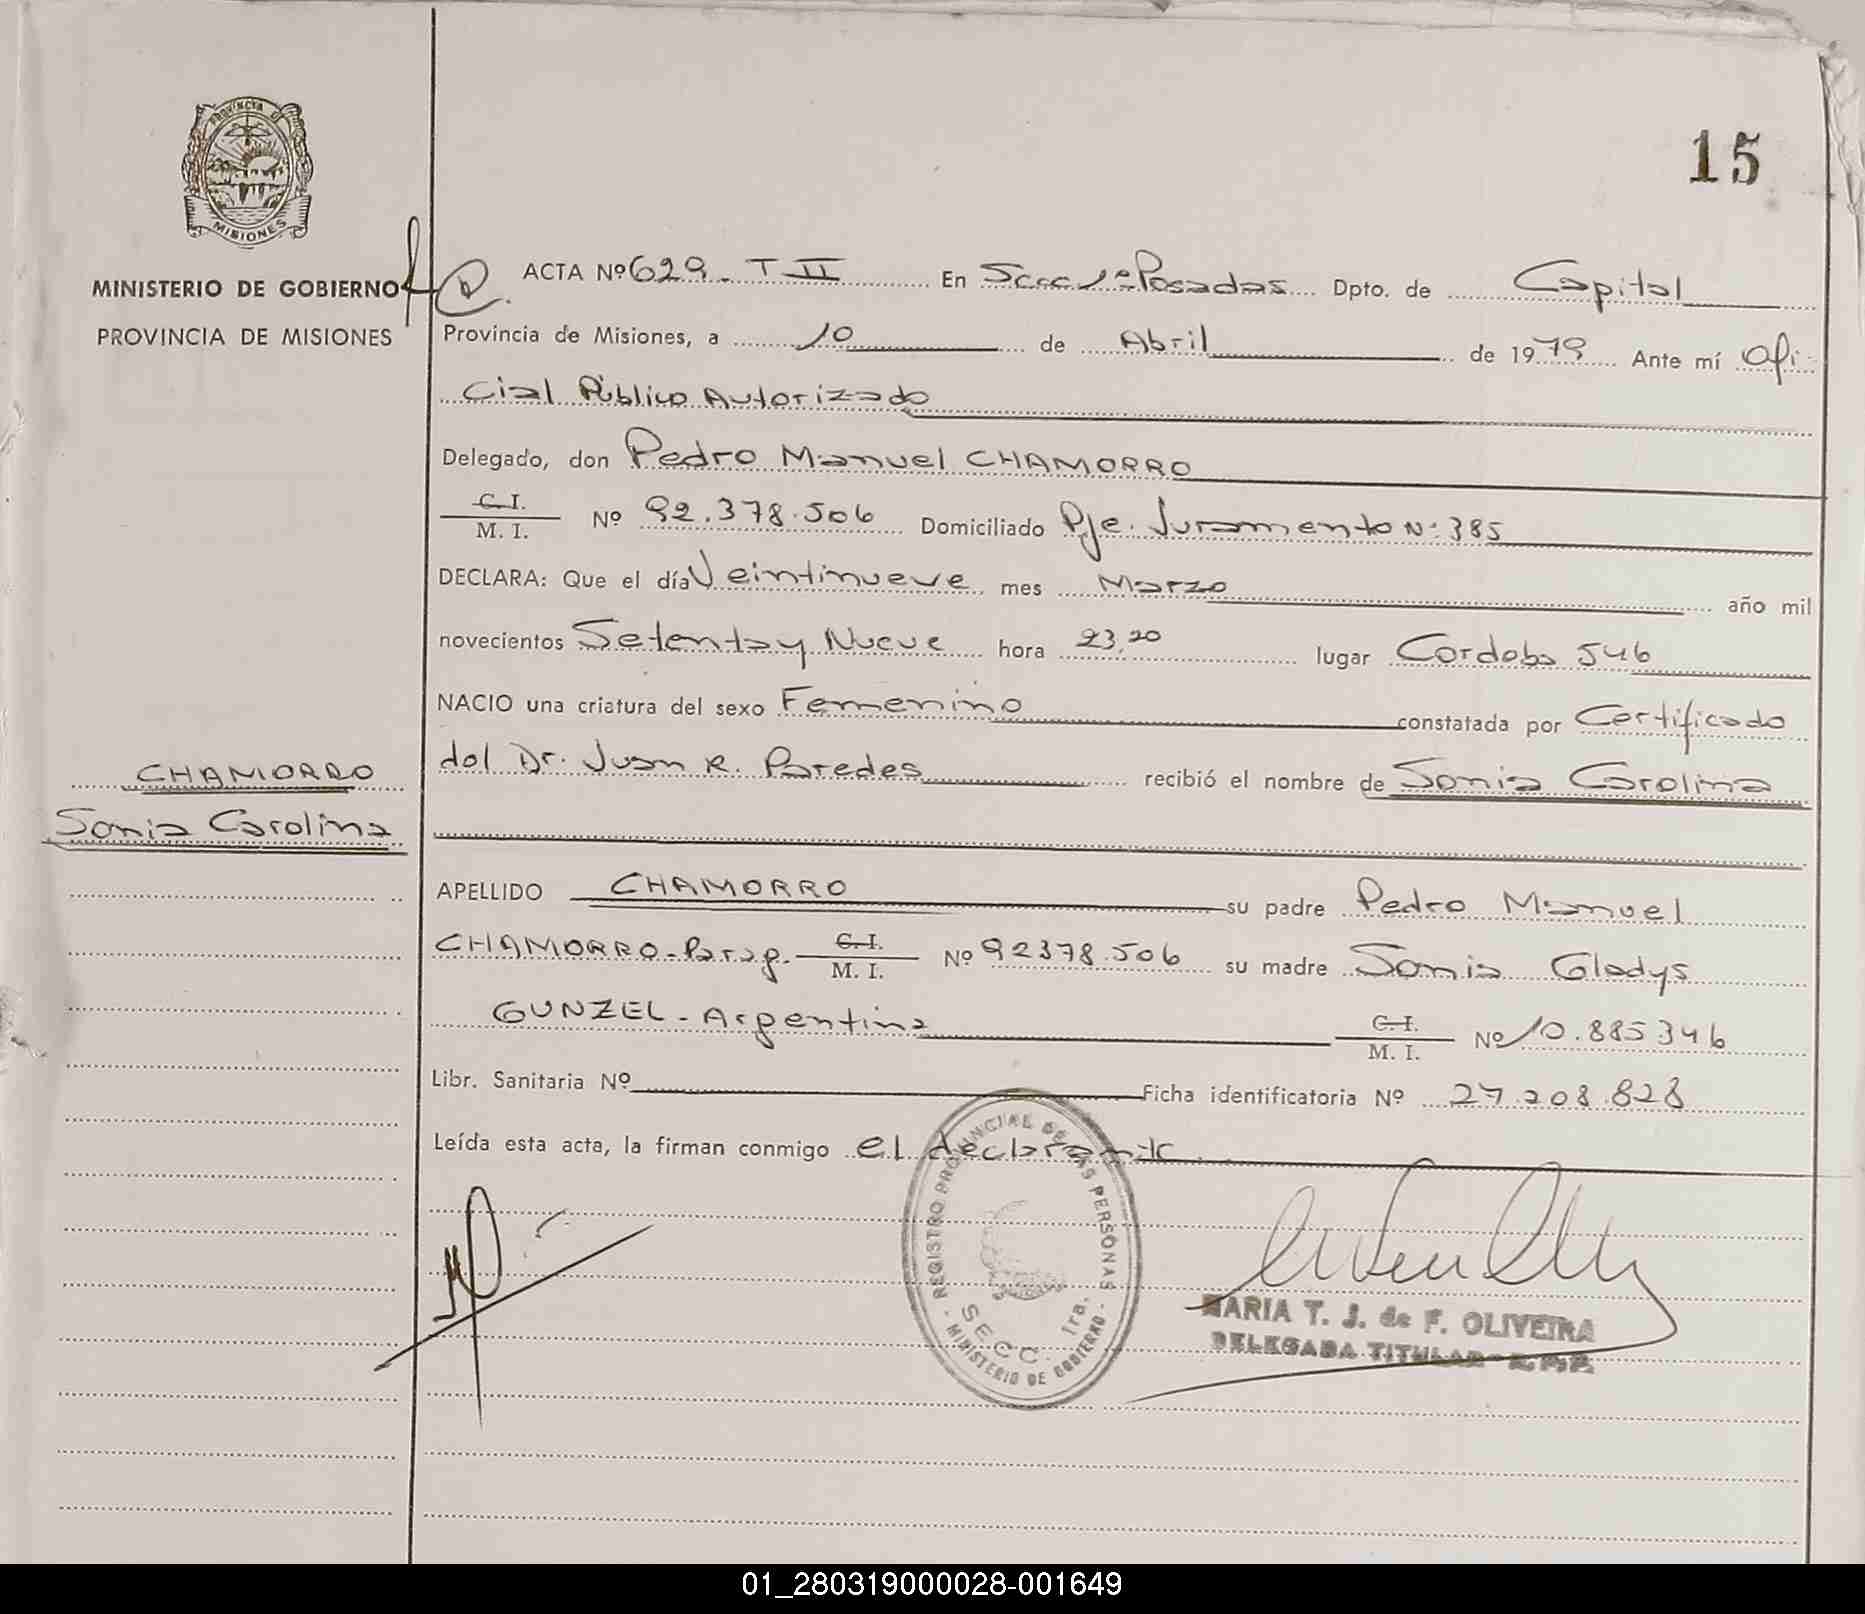 PROVINCIA D
MISIONES
15
MINISTERIO DE GOBIERNO
PROVINCIA DE MISIONES
ACTA Nº 629 - T II En Secc 1ª Posadas Dpto. de Capital
Provincia de Misiones, a 10 de Abril de 1979 Ante mí Ofi-
cial Público Autorizado
Delegado, don Pedro Manuel CHAMORRO
C. I.
M. I. Nº 92.378.506 Domiciliado Pje. Juramento Nº 385
DECLARA: Que el día Veintinueve mes Marzo año mil
novecientos Setenta y Nueve hora 23,20 lugar Cordoba 546
NACIO una criatura del sexo Femenino constatada por Certificado
del Dr. Juan R. Paredes recibió el nombre de Sonia Carolina
CHAMORRO
Sonia Carolina
APELLIDO CHAMORRO su padre Pedro Manuel
CHAMORRO - Parag. C. I.
M. I. Nº 92378.506 su madre Sonia Gladys
GUNZEL - Argentina C. I.
M. I. Nº 10.885346
Libr. Sanitaria Nº Ficha identificatoria Nº 27.208.828
Leída esta acta, la firman conmigo el declarante.
REGISTRO PROVINCIAL DE LAS PERSONAS
SECC. 1ra.
- MINISTERIO DE GOBIERNO -
MARIA T. J. de F. OLIVEIRA
DELEGADA TITULAR - R. P. P.
01_280319000028-001649